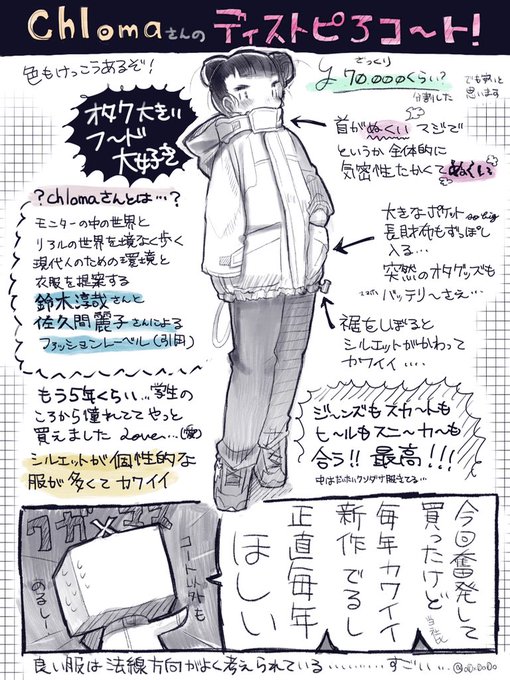 Chlomaさんの ディストピアコート!
色もけっこうあるぞ!
ざっくり
¥70000くらい?
分割した
でも安いと
思います
オタク大きい
フード
大好き
首がぬくい マジで
というか全体的に
気密性たかくてぬくい
?chlomaさんとは…?
モニターの中の世界と
リアルの世界を境なく歩く
現代人のための環境と
衣服を提案する
鈴木淳哉さんと
佐久間麗子さんによる
ファッションレーベル(引用)
大きなポケット so big
長財布もずっぽし
入る…
突然のオタグッズも
バッテリーさえ…
裾をしぼると
シルエットがかわって
カワイイ….
もう5年くらい…学生の
ころから憧れててやっと
買えました Love…
シルエットが個性的な
服が多くてカワイイ
ジーンズもスカートも
ヒールもスニーカーも
合う!! 最高!!!
今回奮発して
買ったけど
毎年カワイイ
新作でるし
正直毎年
ほしい
コート以外も
のるし…
良い服は法線方向がよく考えられている………… すごい…